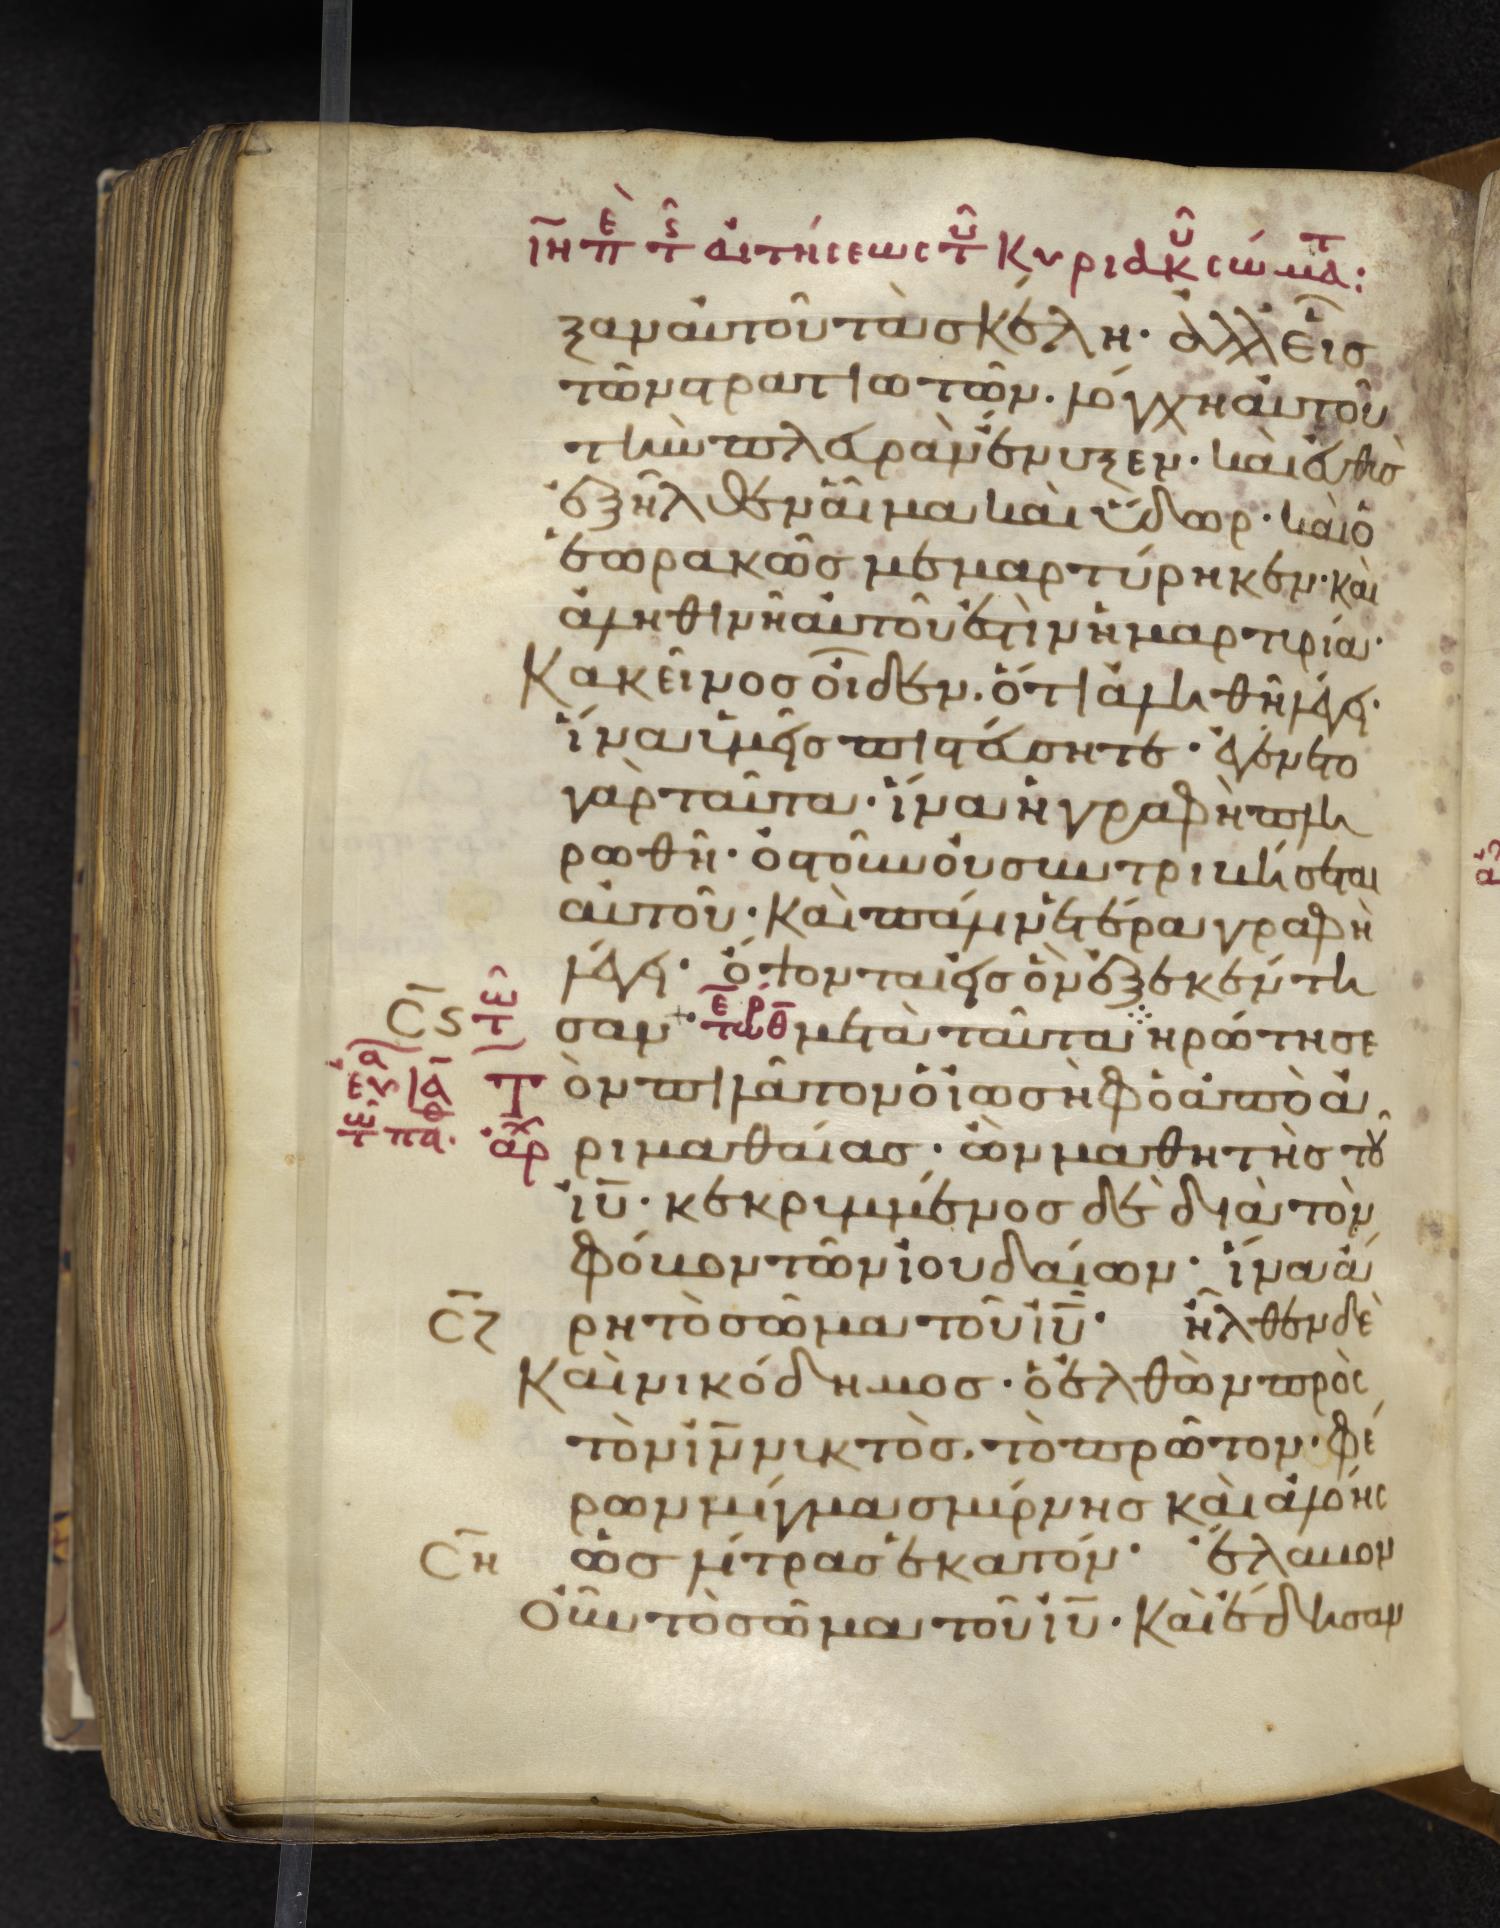 ιη πε τς αιτήσεως τοῦ κυριακοῦ σώματ:
ξαν αὐτοῦ τὰ σκέλη· ἀλλ εἷσ
τῶν στρατιωτῶν. λόγχη αὐτοῦ
τὴν πλευρὰν ἔνυξεν· καὶ εὐθὺσ
ἐξῆλθεν αἷμα καὶ ὕδωρ· καὶ ὁ
ἑωρακῶσ μεμαρτύρηκεν· καὶ
ἀληθινὴ αὐτοῦ ἐστὶν ἡ μαρτυρία·
Κακεῖνοσ οἶδεν. ὅτι ἀληθῆ λέγει·
ἵνα ὑμεῖσ πιστεύσητε· ἐγένετο
γὰρ ταῦτα· ἵνα ἡ γραφὴ πλη
ρωθῆ· ὀστοῦν οὐ συντριβήσεται
αὐτοῦ· Καὶ πάλιν ἑτέρα γραφὴ
λέγει· ὄψονται εἰσ ὃν ἐξεκέντη
CϚ τε σαν· μετὰ ταῦτα ἠρώτησε
Τ ὸν πιλᾶτον ὁ ἰωσὴφ ὁ ἀπὸ ἀ
αρχ ριμαθαίασ· ὢν μαθητὴσ τοῦ
ἰυ· κεκρυμμένοσ δὲ διὰ τὸν
φόβον τῶν ἰουδαίων· ἵνα ἄ
CΖ ρη τὸ σῶμα τοῦ ἰυ· ἦλθεν δὲ
Καὶ νικόδημοσ· ὁ ἐλθὼν πρὸς
τὸν ἰν νυκτὸσ. τὸ πρῶτον· φέ
ρων μίγμα σμύρνησ καὶ ἀλόης
Cη ὡσ λίτρασ ἑκατόν· ἔλαβον
Οὖν τὸ σῶμα τοῦ ἰυ· Καὶ ἔδησαν